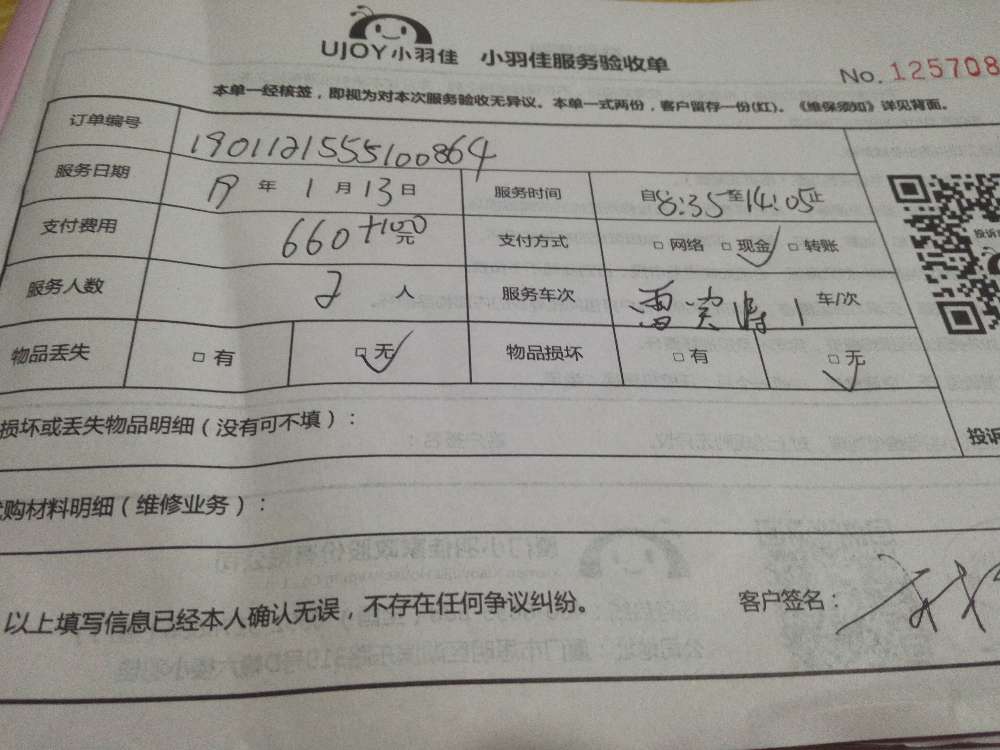 UJOY小羽佳 小羽佳服务验收单
No. 125708
本单一经核签，即视为对本次服务验收无异议。本单一式两份，客户留存一份(红)。《维保须知》详见背面。
订单编号 1901121555100864
服务日期 19 年 1 月 13 日 服务时间 自8:35至14:05止
支付费用 660+100元 支付方式 □ 网络 □ 现金 □ 转账
服务人数 2 人 服务车次 1 车/次
物品丢失 □ 有 □ 无 物品损坏 □ 有 □ 无
投诉
损坏或丢失物品明细（没有可不填）：
投诉
购材料明细（维修业务）：
以上填写信息已经本人确认无误，不存在任何争议纠纷。 客户签名：